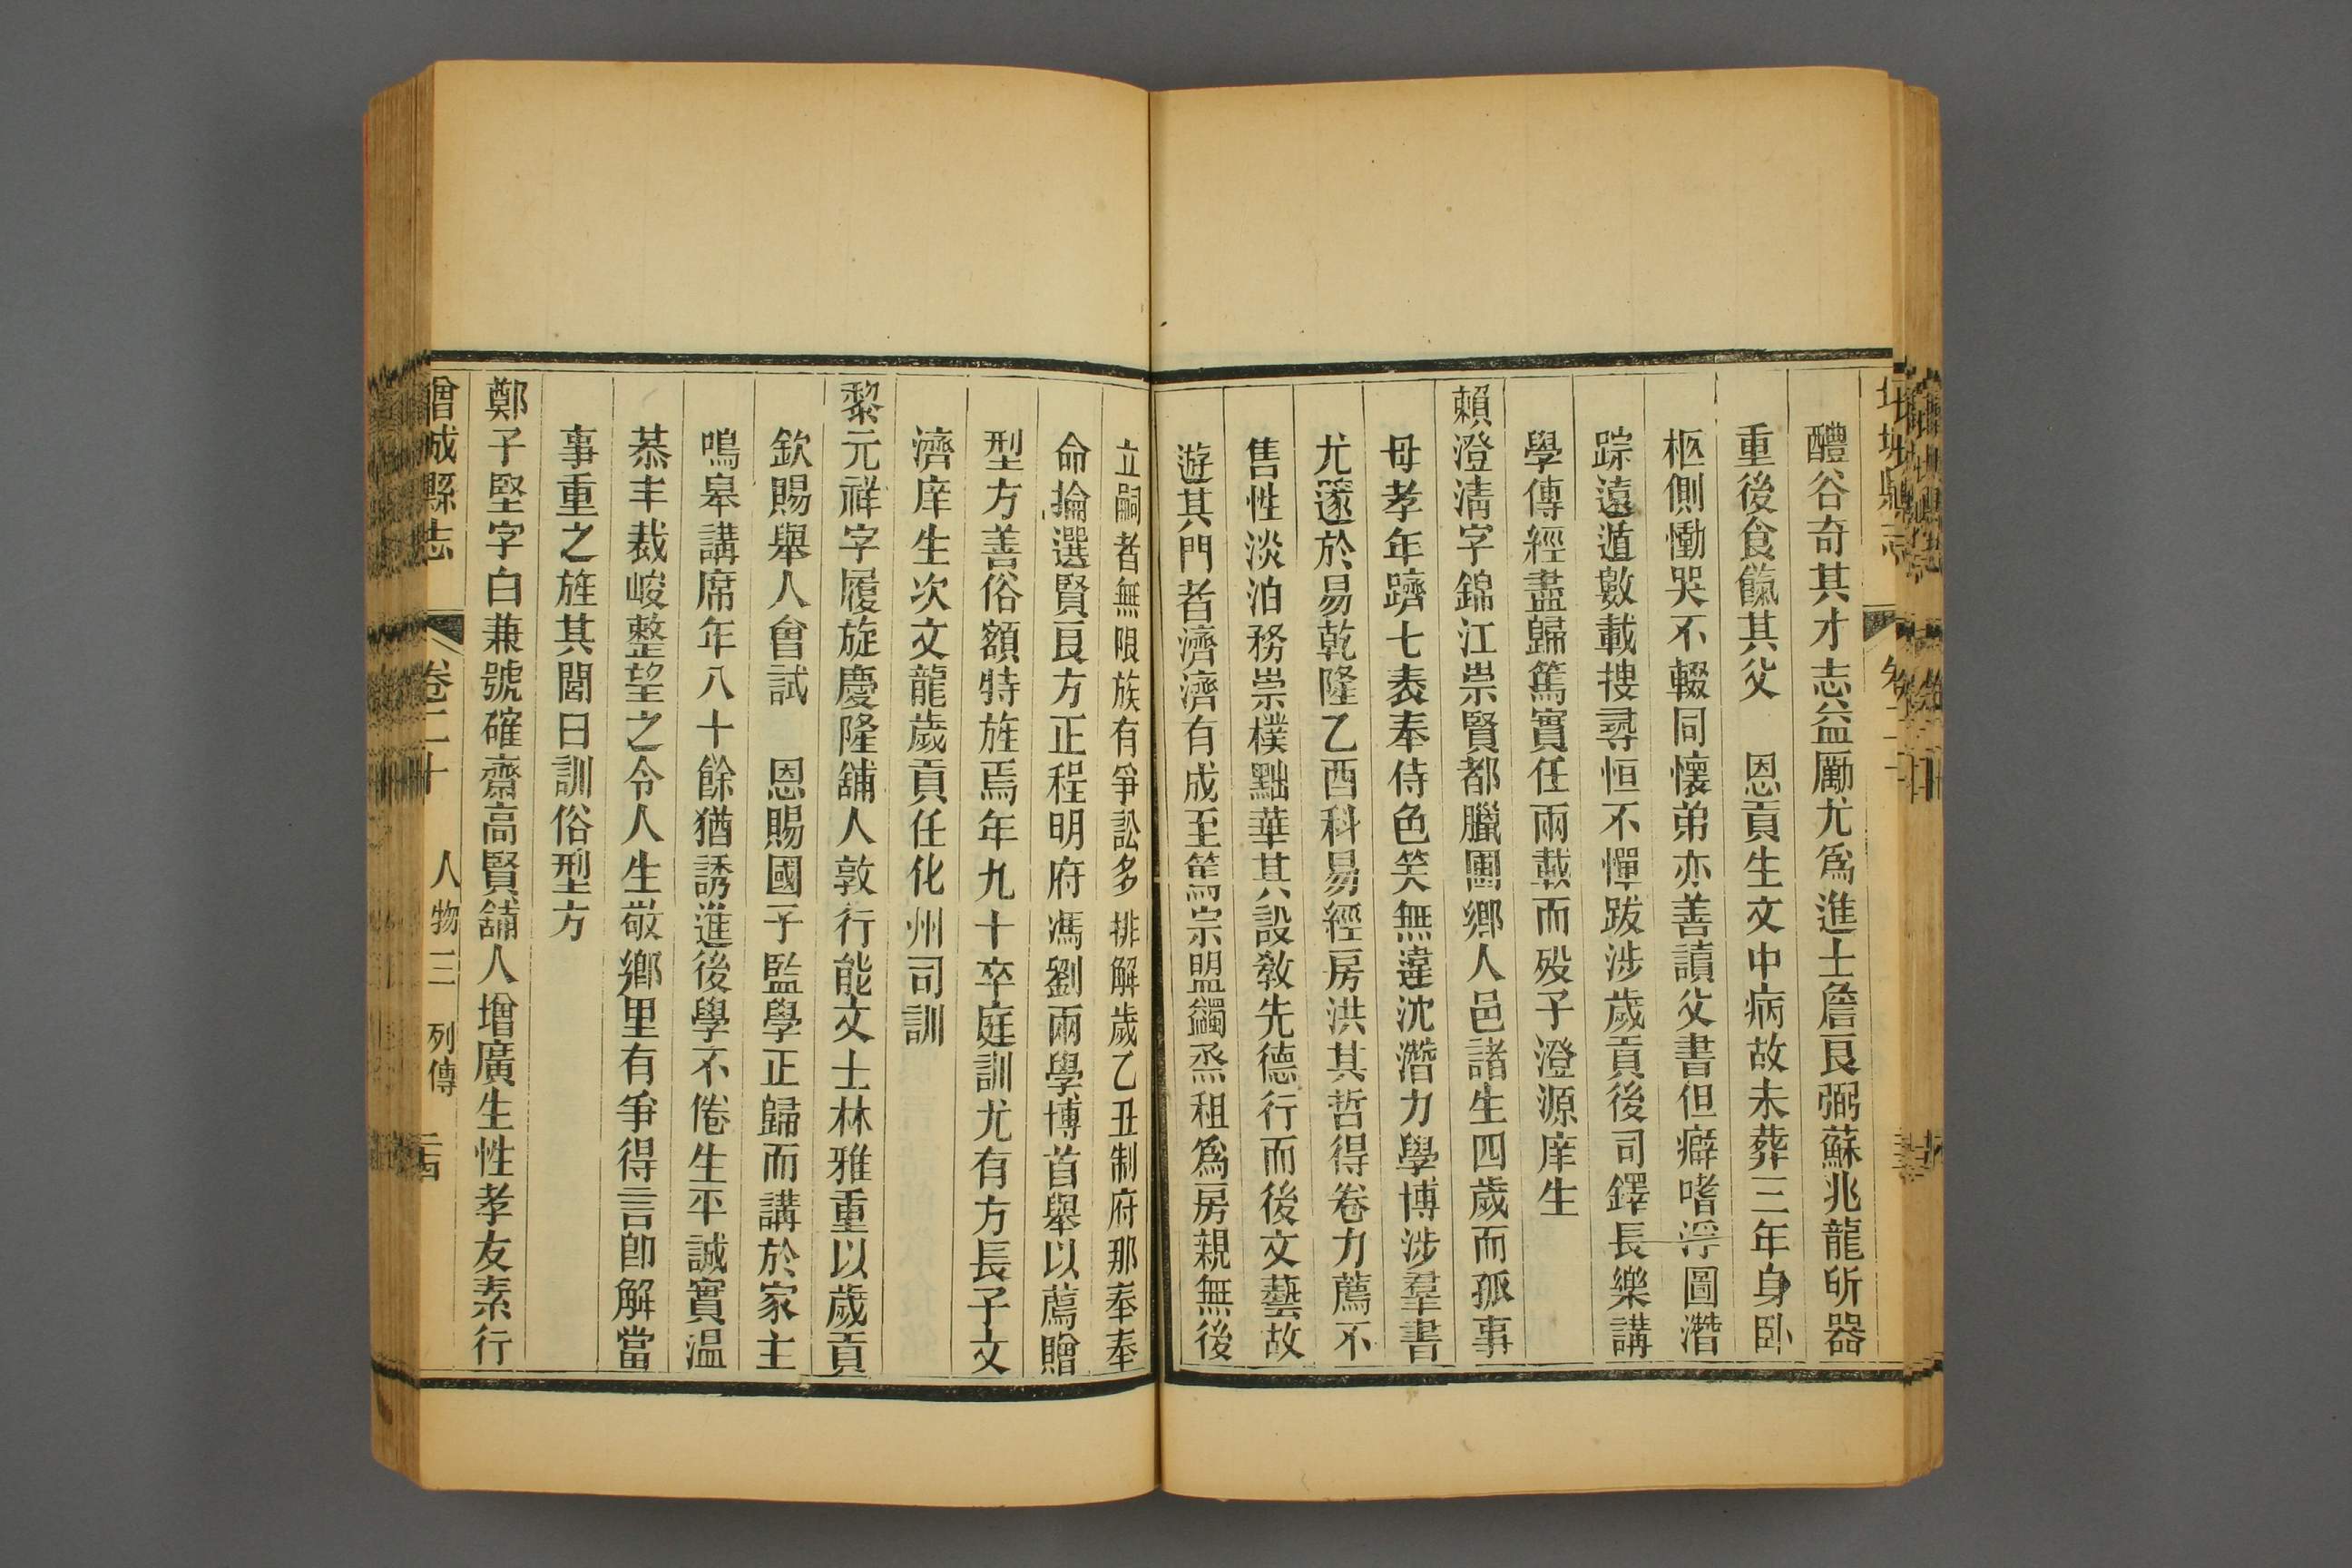 醴谷奇其才志益勵尤爲進士詹良弼蘇兆龍所器
重後食餼其父　恩貢生文中病故未葬三年身卧
柩側慟哭不輟同懷弟亦善讀父書但癖嗜浮圖潛
踪遠遁數載捜尋恒不憚跋涉歲貢後司鐸長樂講
學傳經盡歸篤實任兩載而殁子澄源庠生
賴澄淸字錦江崇賢都臘圃鄉人邑諸生四歲而孤事
母孝年躋七袠奉侍色笑無違沈潛力學博涉羣書
尤邃於易乾隆乙酉科易經房洪其哲得卷力薦不
售性淡泊務崇樸黜華其設教先德行而後文藝故
遊其門者濟濟有成至篤宗盟蠲烝租爲房親無後
立嗣者無限族有爭訟多排解歲乙丑制府那奉奉
命掄選賢良方正程明府馮劉兩學博首舉以薦贈
型方善俗額特旌焉年九十卒庭訓尤有方長子文
濟庠生次文龍歲貢任化州司訓
黎元祥字履旋慶隆舖人敦行能文士林雅重以歲貢
欽賜舉人會試　恩賜國子監學正歸而講於家主
鳴皋講席年八十餘猶誘進後學不倦生平誠實溫
恭丰裁峻整望之令人生敬鄉里有爭得言卽解當
事重之旌其閭曰訓俗型方
鄭子堅字白兼號確齋高賢舖人增廣生性孝友素行
增城縣志　卷二十　人物三　列傳　二四